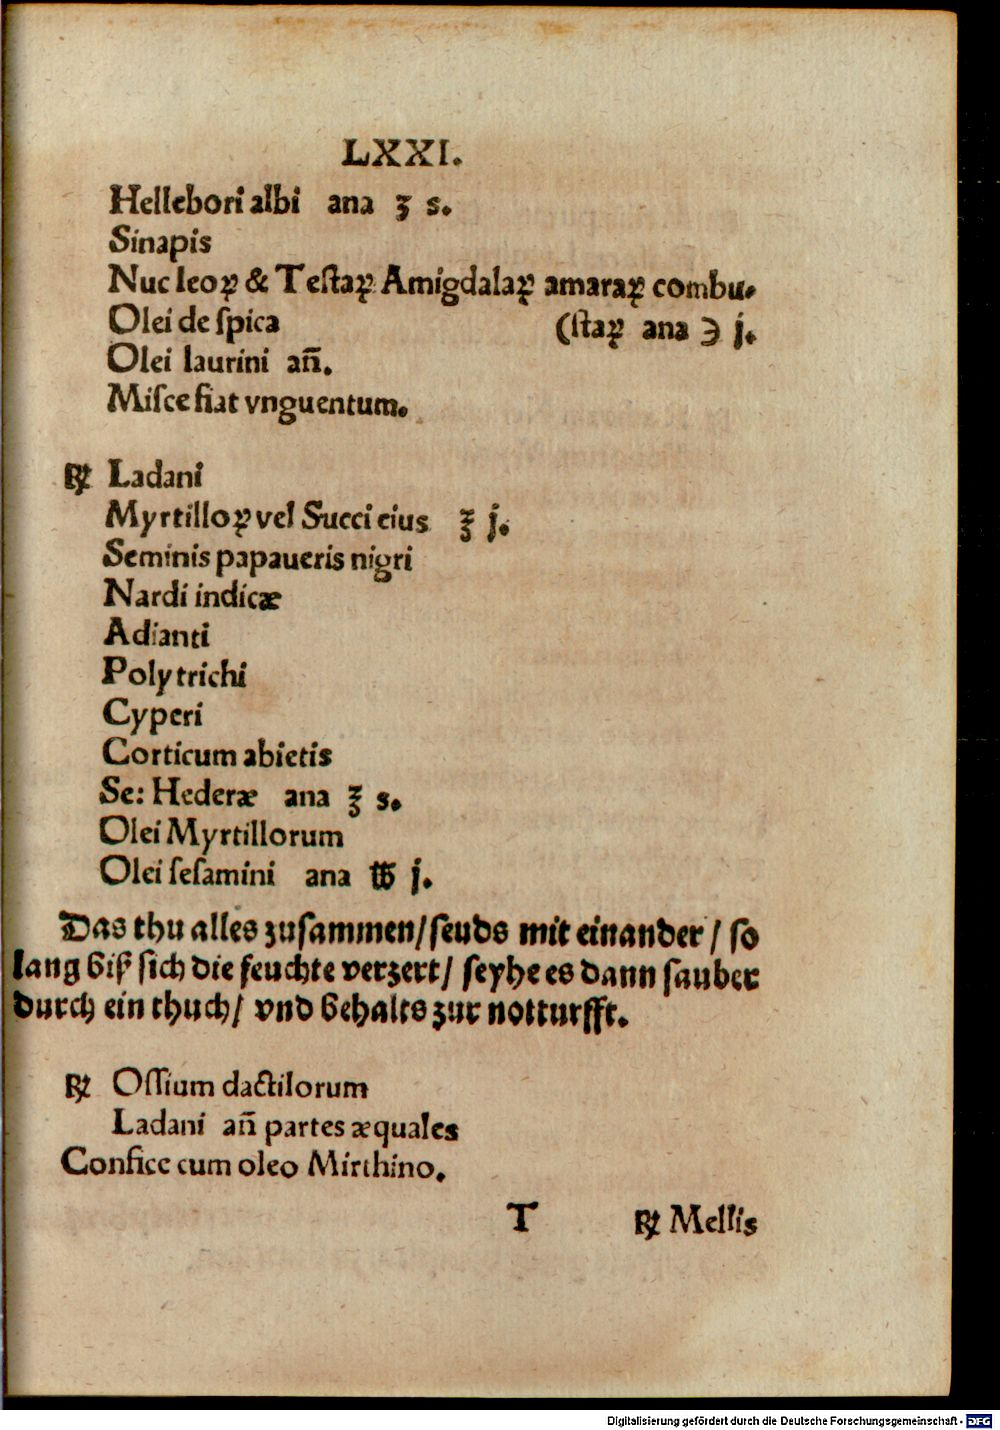 LXXI.
Hellebori albi ana ʒ s.
Sinapis
Nucleoꝝ & Testaꝝ Amigdalaꝝ amaraꝝ combu-
Olei de ſpica (ſtaꝝ ana ℈ j.
Olei laurini an̄.
Miſce fiat vnguentum.
℞ Ladani
Myrtilloꝝ vel Succi eius ℥ j.
Seminis papaueris nigri
Nardi indicæ
Adianti
Polytrichi
Cyperi
Corticum abietis
Se: Hederæ ana ℥ s.
Olei Myrtillorum
Olei ſeſamini ana ℔ j.
Das thu alles zuſammen/ſeuds mit einander/ ſo
lang biß ſich die feuchte verzert/ ſeyhe es dann ſauber
durch ein thuch/ vnd behalts zur notturfft.
℞ Oſſium dactilorum
Ladani an̄ partes æquales
Confice cum oleo Mirthino.
T ℞ Mellis
Digitalisierung gefördert durch die Deutsche Forschungsgemeinschaft - DFG